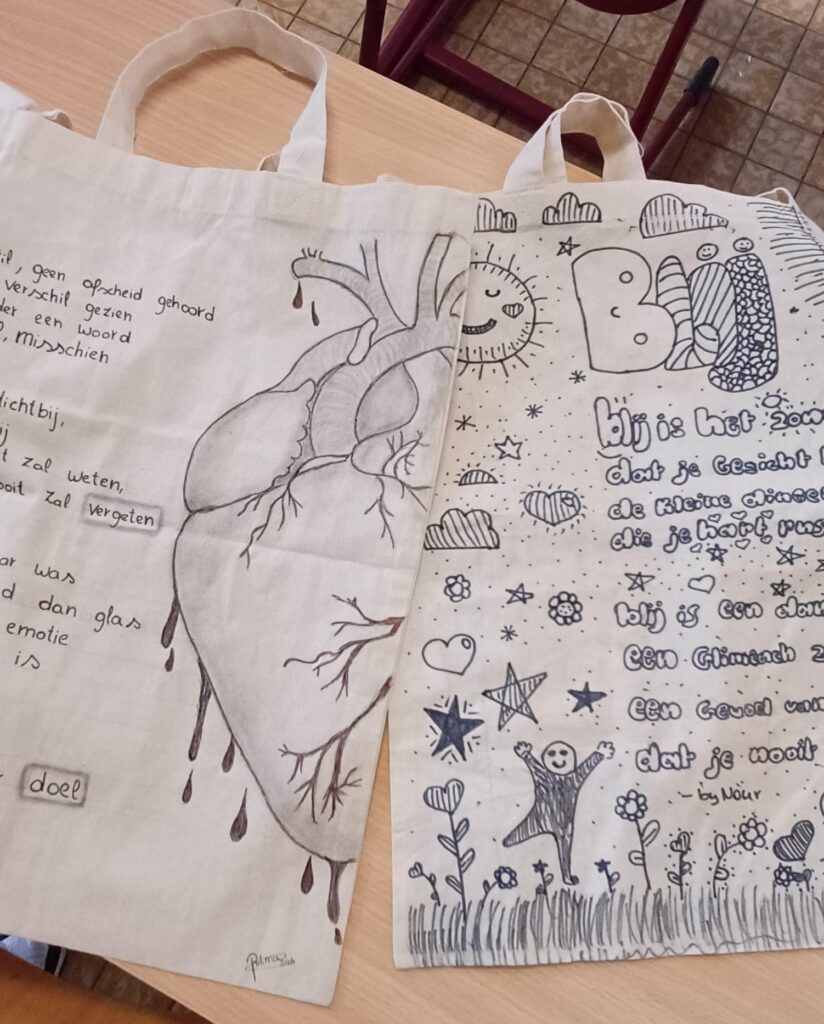 il, geen afscheid gehoord
verschil gezien
der een woord
, misschien
dichtbij,
ij
t zal weten,
ooit zal vergeten
ar was
d dan glas
emotie
is
doel
Blij
blij is het zon
dat je Gezicht
de kleine dingen
die je hart rus
blij is een dan
een Glimlach z
een Gevoel van
dat je nooit
- by Nour